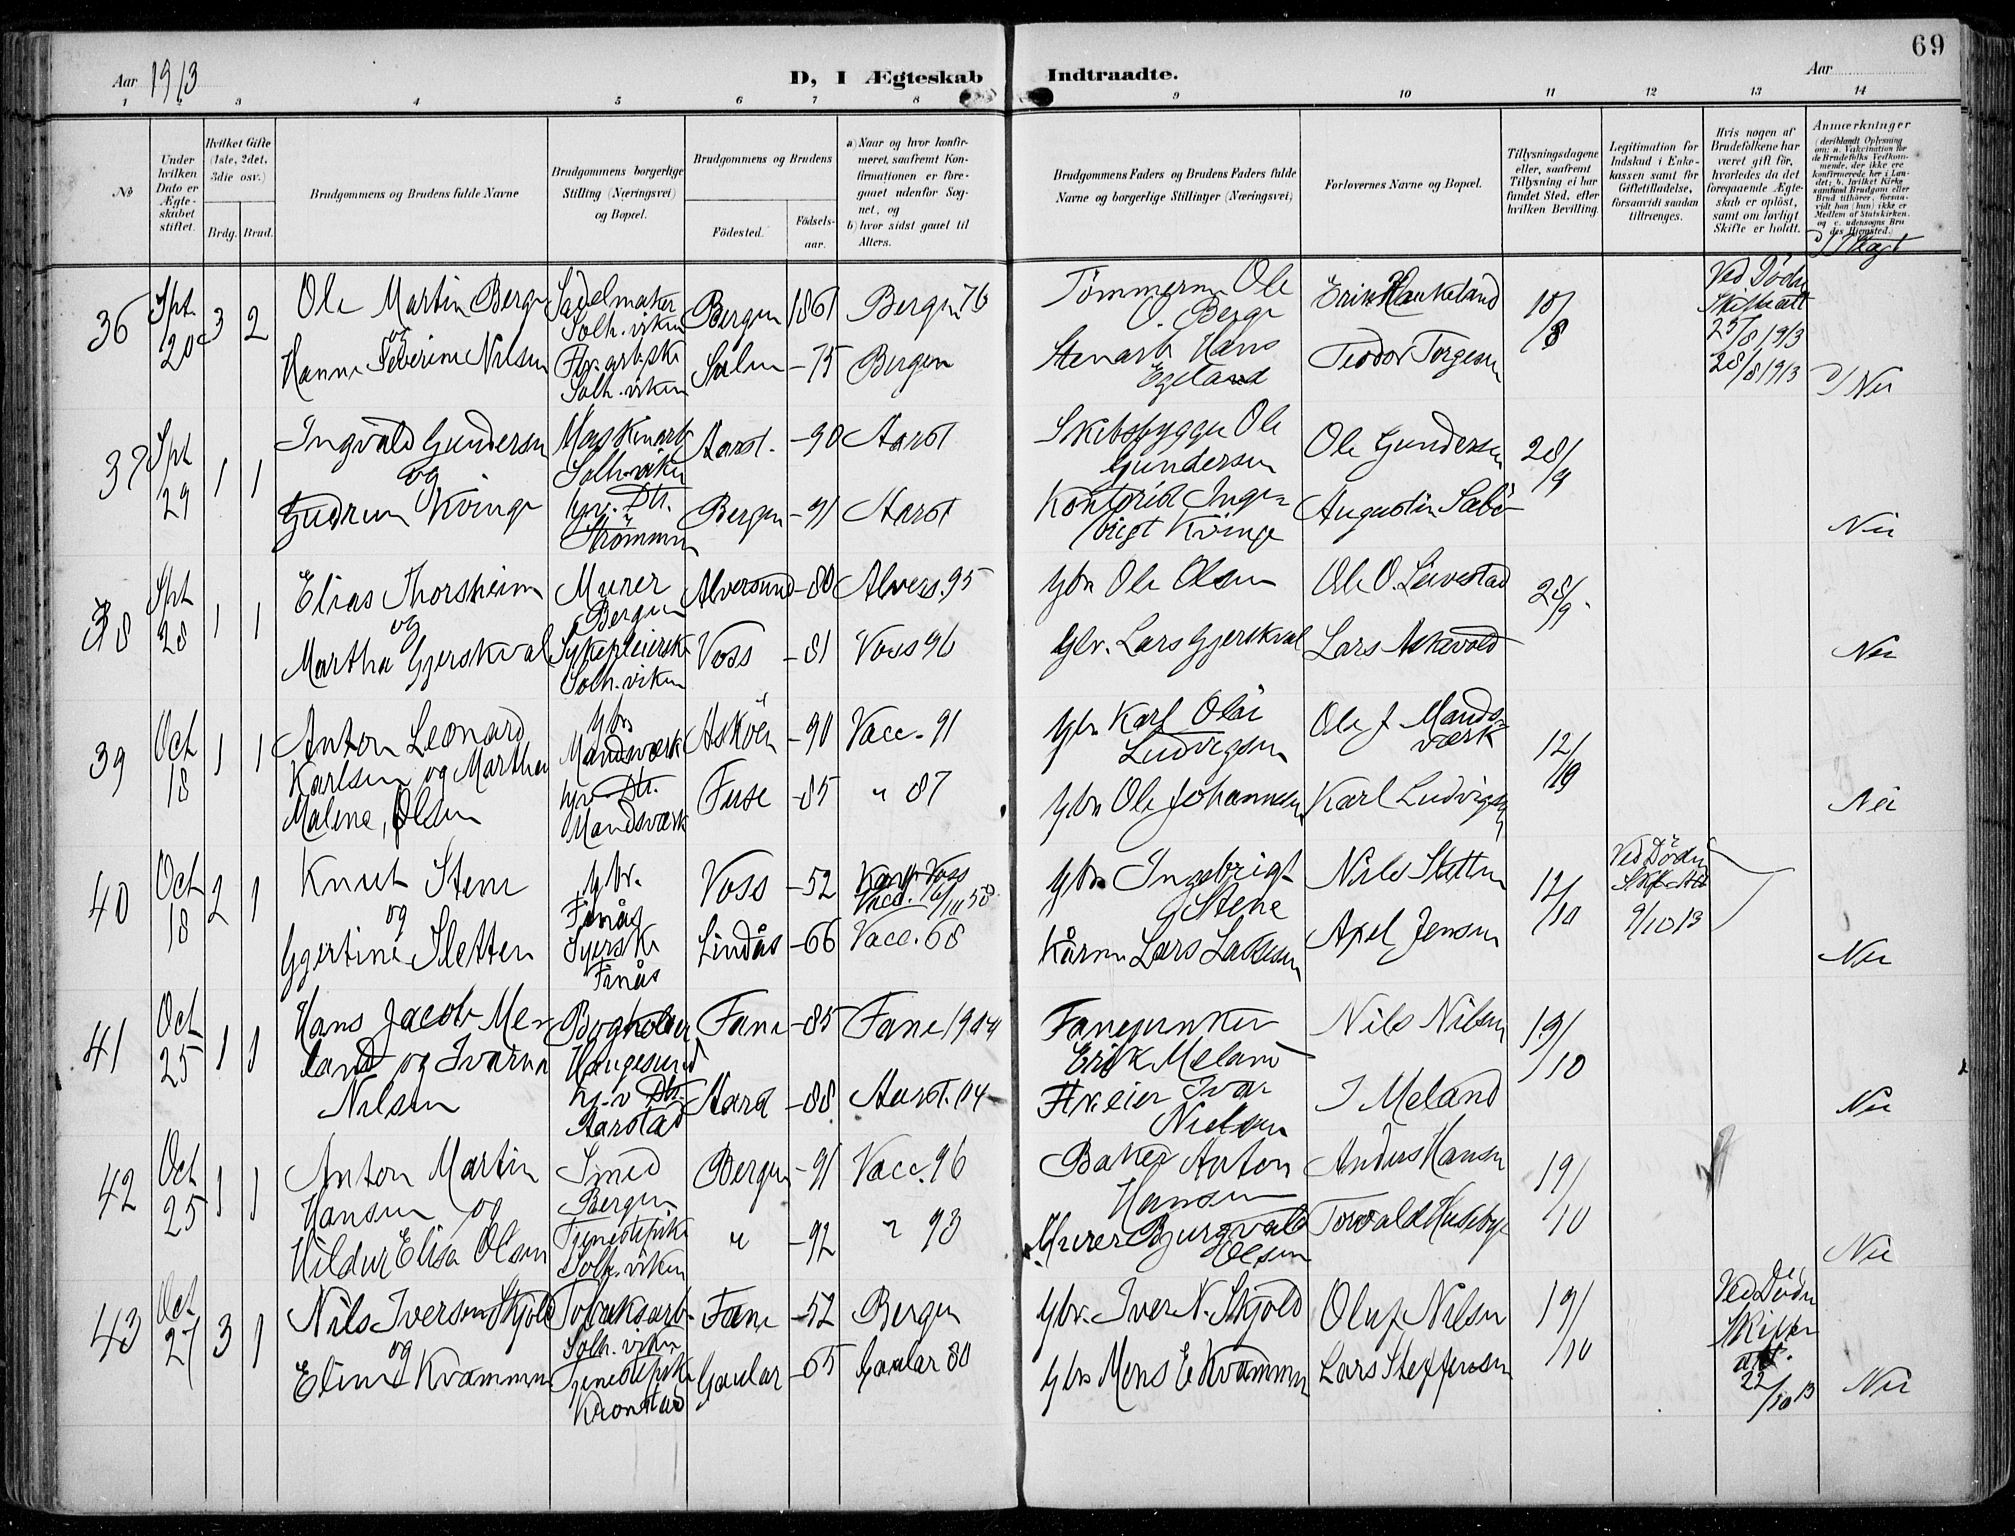 69
Aar 1913
D, I Ægteskab Indtraadte.
Aar
1 2 3 4 5 6 7 8 9 10 11 12 13 14
No
Under hvilken Dato er Ægteskabet stiftet.
Hvilket Gifte (1ste, 2det, 3die osv.)
Brdg. Brud.
Brudgommens og Brudens fulde Navne
Brudgommens borgerlige Stilling (Næringsvei) og Bopæl.
Brudgommens og Brudens
Fødested.
Fødselsaar.
a) Naar og hvor konfirmeret, saafremt Konfirmationen er foregaaet udenfor Sognet, og
b) hvor sidst gaaet til Alters.
Brudgommens Faders og Brudens Faders fulde Navne og borgerlige Stillinger (Næringsvei)
Forlovernes Navne og Bopæl.
Tillysningsdagene eller, saafremt Tillysning ei har fundet Sted, efter hvilken Bevilling.
Legitimation for Indskud i Enkekassen samt for Giftetilladelse, forsaavidt saadan tiltrænges.
Hvis nogen af Brudefolkene har været gift før, hvorledes da det foregaaende Ægteskab er opløst, samt om lovligt Skifte er holdt.
Anmærkninger
(deriblandt Oplysning om: a. Vakcination for de Brudefolks Vedkommende, der ikke ere konfirmerede her i Landet; b. hvilket Kirkesamfund Brudgom eller Brud tilhører, forsaavidt han (hun) ikke er Medlem af Statskirken. og c. udensogns Brudes Hjemsted.)
36 Spt. 20 3 2 Ole Martin Berge Sadelmaker Solh.viken Bergen 1861 Bergen 76 Tømmerm Ole O. Berge Erik Haukeland 10/8 Ved Døden Skifteatt 25/8 1913
og
Hanne Severine Nilsen Solh.viken -75 Bergen Stenarb Hans Egeland Teodor Torgesen 28/8 1913 Nei
37 Spt 29 1 1 Ingvald Gundersen Maskinarb Solh.viken Aarst. -90 Aarst Skibsbygger Ole Gundersen Ole Gundersen 28/9
og
Gudrun Kvinge hjv. Dtr. Strømmen Bergen -91 Aarst Kontorist Ingebrigt Kvinge Augustin Sæbø Nei
38 Spt 28 1 1 Elias Thorsheim Murer Bergen Alversund -80 Alvers. 95 Gbr Ole Olsen Ole O. 28/9
og
Martha Gjerskval Sykepleierske Solh.viken Voss -81 Voss 96 Gbr. Lars Gjerskval Lars Askevold Nei
39 Oct 18 1 1 Anton Leonard Gbr Mandsværk Askøen -90 Vacc. 91 Gbr Karl Olai Ludvigsen Ole J Mandsværk 12/19
Karlsen og Martha
Malene, Olsen hjv Dtr. Mandsværk Fuse -85 " 87 Gbr Ole Johannesen Karl Ludvigsen Nei
40 Oct 18 2 1 Knut Stene Gbr. Finås Voss -52 Konf. Voss Vacc. Gbr Ingebrigt Stene Nils Sletten 12/10 Ved Døden Skf. Att 9/10 13
og
Gjertine Sletten Syerske Finås Lindås -66 Vacc. 68 Kårm Lars Lassesen Axel Jensen Nei
41 Oct 25 1 1 Hans Jacob Meland og Ivarna Nilsen Bogholder Haugesund Fane -85 Fane 1904 Fanejunker Erik Meland Nils Nilsen 19/10
hj.v Dtr. Aarstad Aarst -88 Aarst. 04 Ivar Nielsen I Meland Nei
42 Oct 25 1 1 Anton Martin Hansen og Smed Bergen Bergen -91 Vacc. 96 Baker Anton Hansen Anders Hansen 19/10
Hildur Elisa Olsen Tjenestepike Solh.viken " -92 " 93 Murer Burgvald Olsen Torvald Huseby Nei
43 Oct 27 3 1 Nils Iversen Skjold Tobaksarb. Solh.viken Fane -52 Bergen Gbr. Iver N. Skjold Oluf Nilsen 19/10 Ved Døden Skifteatt. 22/10 13
og
Eline Kvammen Tjenestepike Kronstad Gaular -65 Gaular 80 Gbr Mons E Kvammen Lars Steffensen Nei